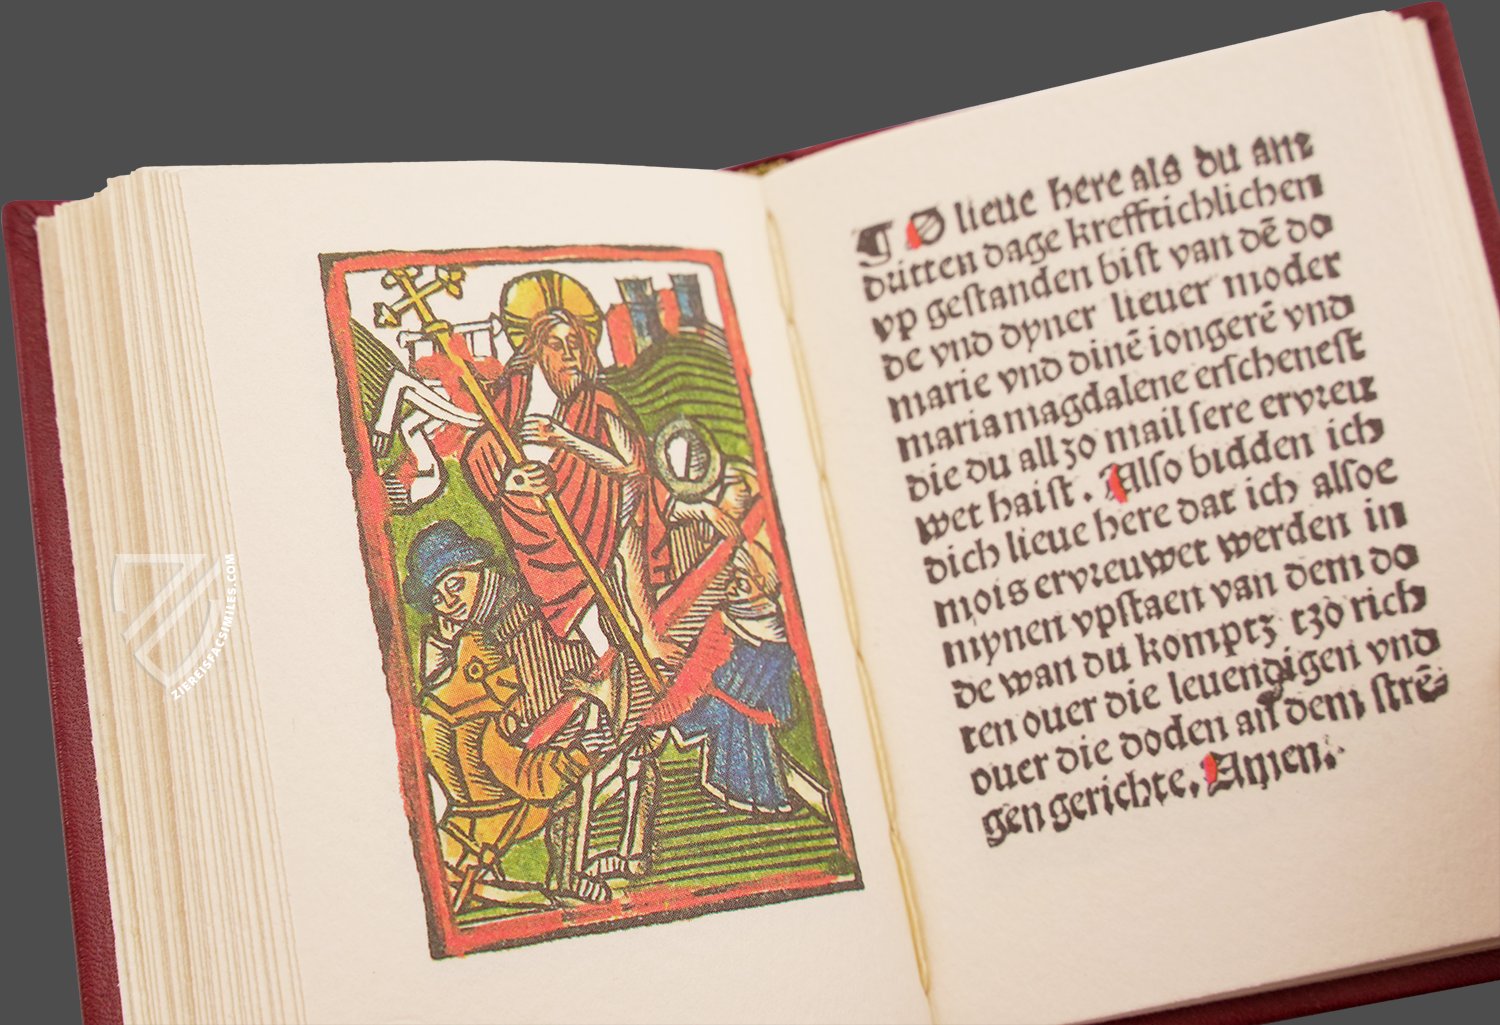 O lieue here als du anz
dritten dage krefftichlichen
vp gestanden bist van dē do
de vnd dyner lieuer moder
marie vnd dinē iongerē vnd
maria magdalene erscheneſt
die du all zo mail ſere ervreu
wet haiſt. Alſo bidden ich
dich lieue here dat ich alſoe
mois ervreuwet werden in
mynen vpſtaen van dem do
de wan du komptz tzo rich
ten ouer die leuendigen vnd
ouer die doden an dem ſtrē
gen gerichte. Amen.
ZIEREISFACSIMILES.COM